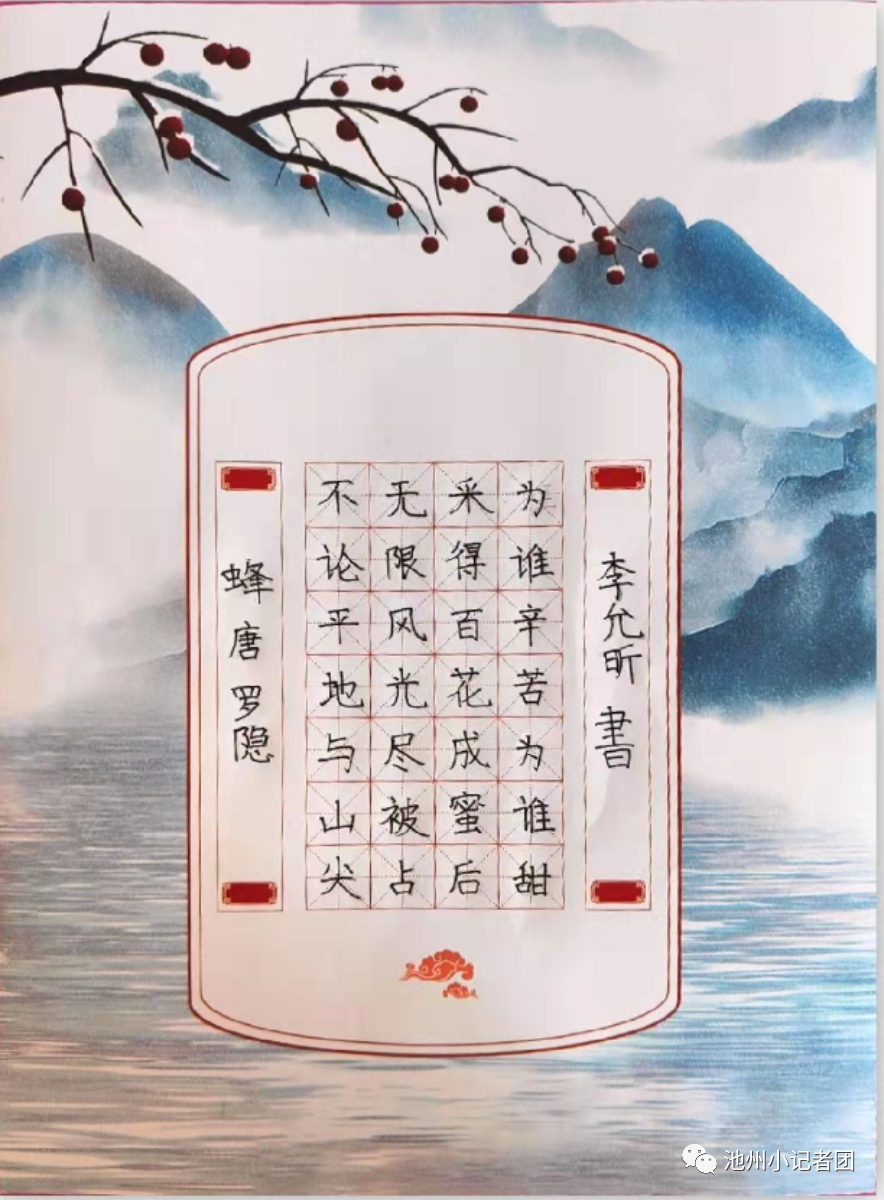 蜂 唐 罗隐
不论平地与山尖
无限风光尽被占
采得百花成蜜后
为谁辛苦为谁甜
李允昕 書
池州小记者团